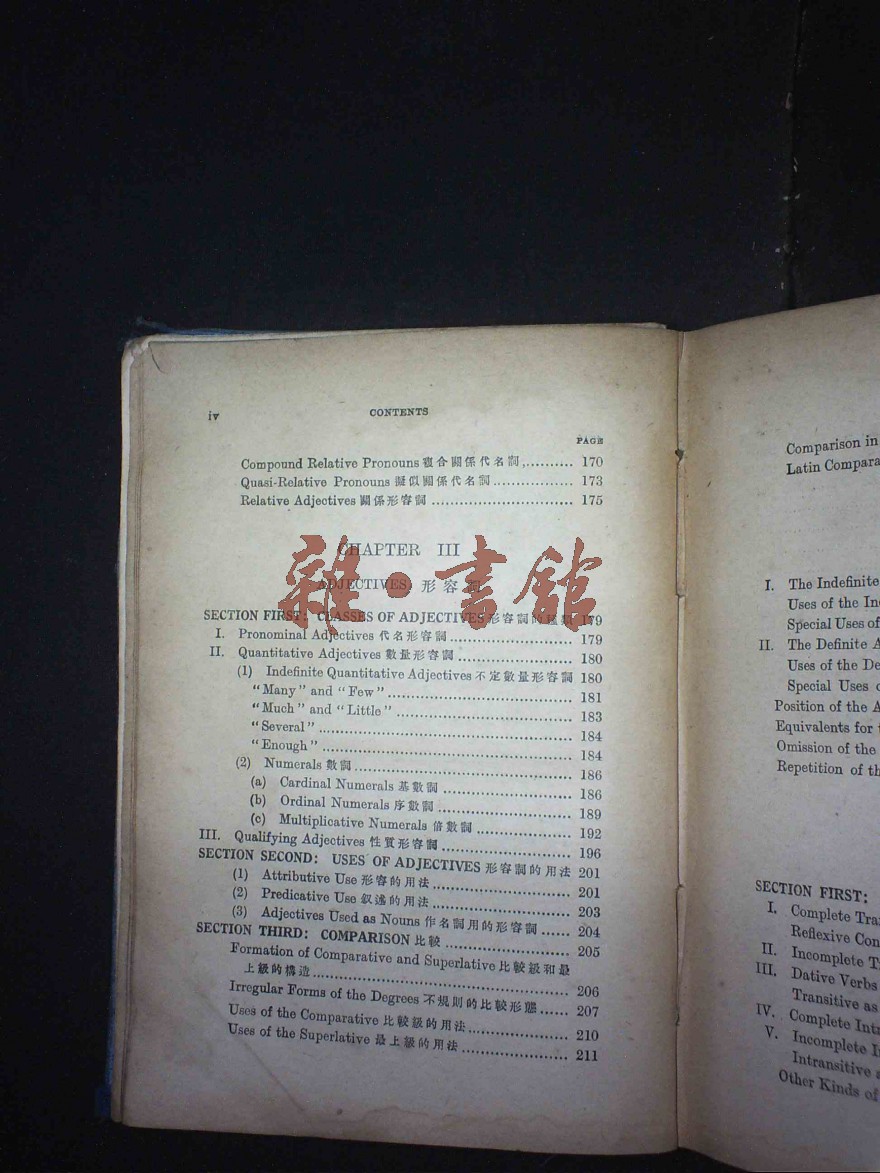 iv
CONTENTS
PAGE
Compound Relative Pronouns 複合關係代名詞,........... 170
Quasi-Relative Pronouns 擬似關係代名詞................. 173
Relative Adjectives 關係形容詞.............................. 175
CHAPTER III
ADJECTIVES 形容詞
SECTION FIRST: CLASSES OF ADJECTIVES 形容詞的種類 179
I. Pronominal Adjectives 代名形容詞......................... 179
II. Quantitative Adjectives 數量形容詞........................ 180
(1) Indefinite Quantitative Adjectives 不定數量形容詞 180
"Many" and "Few"........................................ 181
"Much" and "Little"...................................... 183
"Several"...................................................... 184
"Enough"..................................................... 184
(2) Numerals 數詞............................................... 186
(a) Cardinal Numerals 基數詞........................... 186
(b) Ordinal Numerals 序數詞............................ 189
(c) Multiplicative Numerals 倍數詞.................... 192
III. Qualifying Adjectives 性質形容詞........................... 196
SECTION SECOND: USES OF ADJECTIVES 形容詞的用法 201
(1) Attributive Use 形容的用法................................ 201
(2) Predicative Use 叙述的用法................................ 203
(3) Adjectives Used as Nouns 作名詞用的形容詞...... 204
SECTION THIRD: COMPARISON 比較.......................... 205
Formation of Comparative and Superlative 比較級和最
上級的構造..................................................... 206
Irregular Forms of the Degrees 不規則的比較形態...... 207
Uses of the Comparative 比較級的用法..................... 210
Uses of the Superlative 最上級的用法....................... 211
雜·書館
Comparison in
Latin Compara
I. The Indefinite
Uses of the In
Special Uses of
II. The Definite A
Uses of the De
Special Uses
Position of the A
Equivalents for
Omission of the
Repetition of th
SECTION FIRST:
I. Complete Tra
Reflexive Con
II. Incomplete T
III. Dative Verbs
Transitive as
IV. Complete Intr
V. Incomplete I
Intransitive a
Other Kinds of